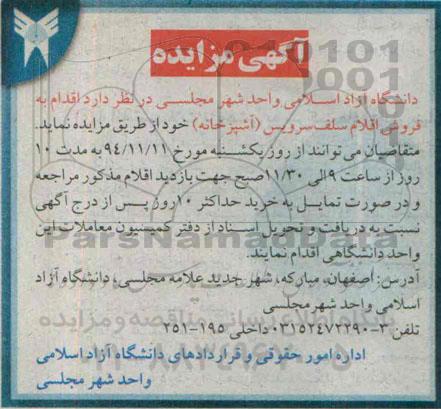 آگهی مزایده
دانشگاه آزاد اسلامی واحد شهر مجلسی در نظر دارد اقدام به
فروش اقلام سلف سرویس (آشپزخانه) خود از طریق مزایده نماید.
متقاضیان می توانند از روز یکشنبه مورخ ۹۴/۱۱/۱۱ به مدت ۱۰
روز از ساعت ۹ الی ۱۱/۳۰ صبح جهت بازدید اقلام مذکور مراجعه
و در صورت تمایل به خرید حداکثر ۱۰ روز پس از درج آگهی
نسبت به دریافت و تحویل اسناد از دفتر کمیسیون معاملات این
واحد دانشگاهی اقدام نمایند.
ParsNamadData
آدرس: اصفهان، مبارکه، شهر جدید علامه مجلسی، دانشگاه آزاد
اسلامی واحد شهر مجلسی
تلفن ۳-۰۳۱۵۲۴۷۲۲۹۰ داخلی ۱۹۵-۲۵۱
اداره امور حقوقی و قراردادهای دانشگاه آزاد اسلامی
واحد شهر مجلسی